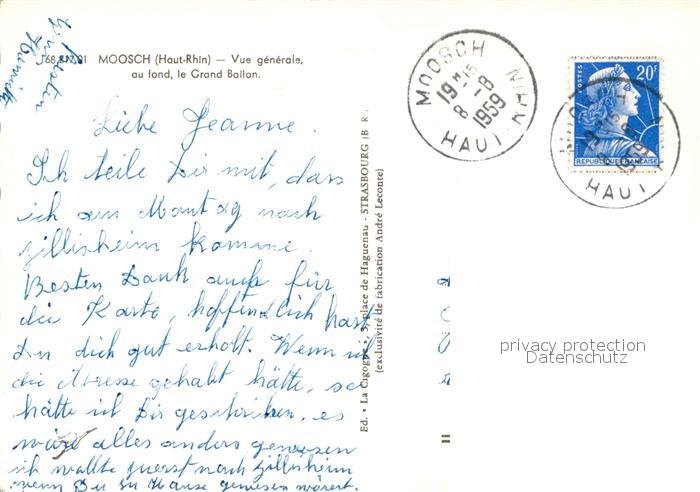 68.817.01 MOOSCH (Haut-Rhin) — Vue générale,
au fond, le Grand Ballon.
Liebe Jeanne.
Ich teile Dir mit, dass
ich am Montag nach
Zillisheim komme.
Besten Dank auch für
die Karte, hoffendlich hast
Du dich gut erholt. Wenn ich
die Adresse gehabt hätte, so
hätte ich Dir geschrieben, es
wäre alles anders gewesen
ich wollte zuerst nach Zillisheim
wenn Du zu Hause gewesen wärest.
Ed. • La Cigogne, place de Haguenau - STRASBOURG (B. R.)
(exclusivité de fabrication André Leconte)
MOOSCH
19 H 15
8 - 8
1959
HAUT-RHIN
POSTES
20F
REPUBLIQUE FRANÇAISE
1959
HAUT
privacy protection
Datenschutz